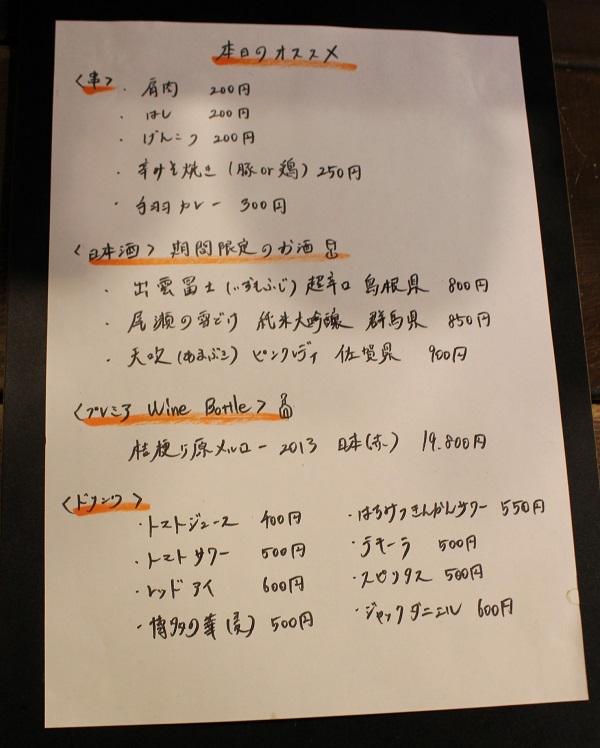 本日のオススメ
<串>
・肩肉 200円
・はし 200円
・げんこつ 200円
・辛みそ焼き (豚or鶏) 250円
・手羽カレー 300円
<日本酒> 期間限定のお酒
・出雲富士 (いずもふじ) 超辛口 島根県 800円
・尾瀬の雪どけ 純米大吟醸 群馬県 850円
・天吹 (あまぶき) ピンクレディ 佐賀県 900円
<プレミア Wine Bottle>
桔梗ヶ原メルロー 2013 日本(赤) 19.800円
<ドリンク>
・トマトジュース 400円
・トマトサワー 500円
・レッドアイ 600円
・博多の華 (麦) 500円
・はちみつきんかんサワー 550円
・テキーラ 500円
・スピリタス 500円
・ジャックダニエル 600円